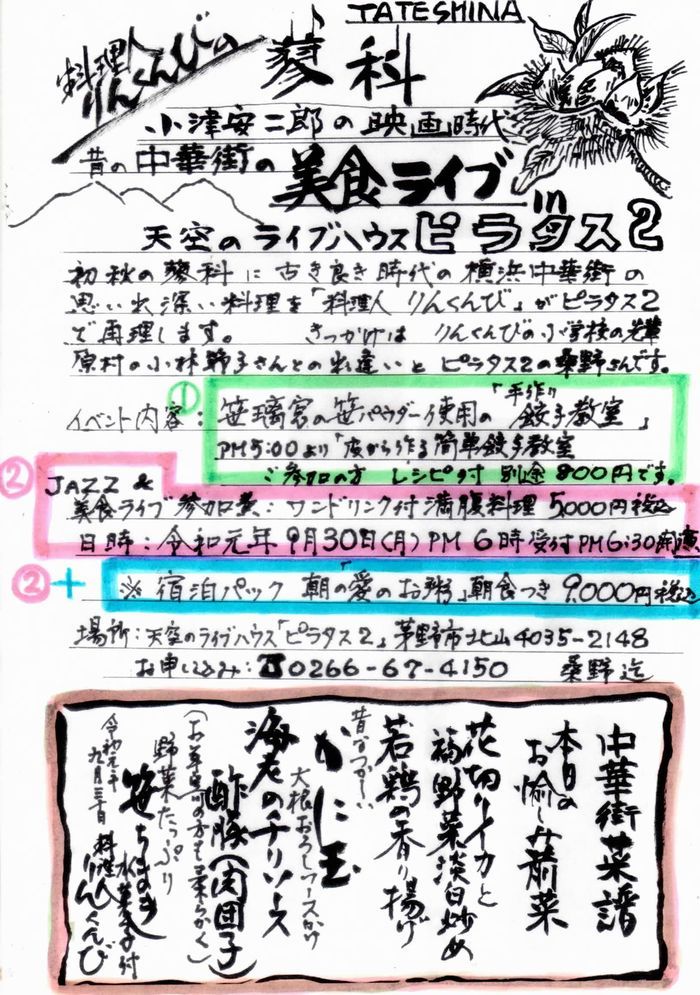 TATESHINA
料理人りんくんびの
蓼科
小津安二郎の映画時代
昔の中華街の
美食ライブ
in
天空のライブハウスピラタス2
初秋の蓼科に古き良き時代の横浜中華街の
思い出深い料理を「料理人りんくんび」がピラタス2
で再理します。きっかけはりんくんびの小学校の先輩
原村の小林節子さんとの出逢いとピラタス2の桑野さんです。
① イベント内容:笹璃宮の笹パウダー使用の「手作り餃子教室」
PM5:00より「皮から作る簡単餃子教室
ご参加の方 レシピ付 別途800円です。
② JAZZ &
美食ライブ参加費:ワンドリンク付満腹料理5,000円税込
日時:令和元年9月30日(月)PM6時受付PM6:30開演
②+ ※宿泊パック 朝の「愛のお粥」朝食つき9,000円税込
場所:天空のライブハウス「ピラタス2」茅野市北山4035-2148
お申し込み:☎0266-67-4150 桑野迄
中華街菜譜
本日の
お愉しみ前菜
花切りイカと
福野菜淡白炒め
若鶏の香り揚げ
昔なつかしい
かに玉
大根おろしソースかけ
海老のチリソース
酢豚(肉団子)
(お年
の方も柔らかく)
野菜たっぷり
笹ちまき
水菓子付
令和元年
九月三十日 料理人
りんくんび